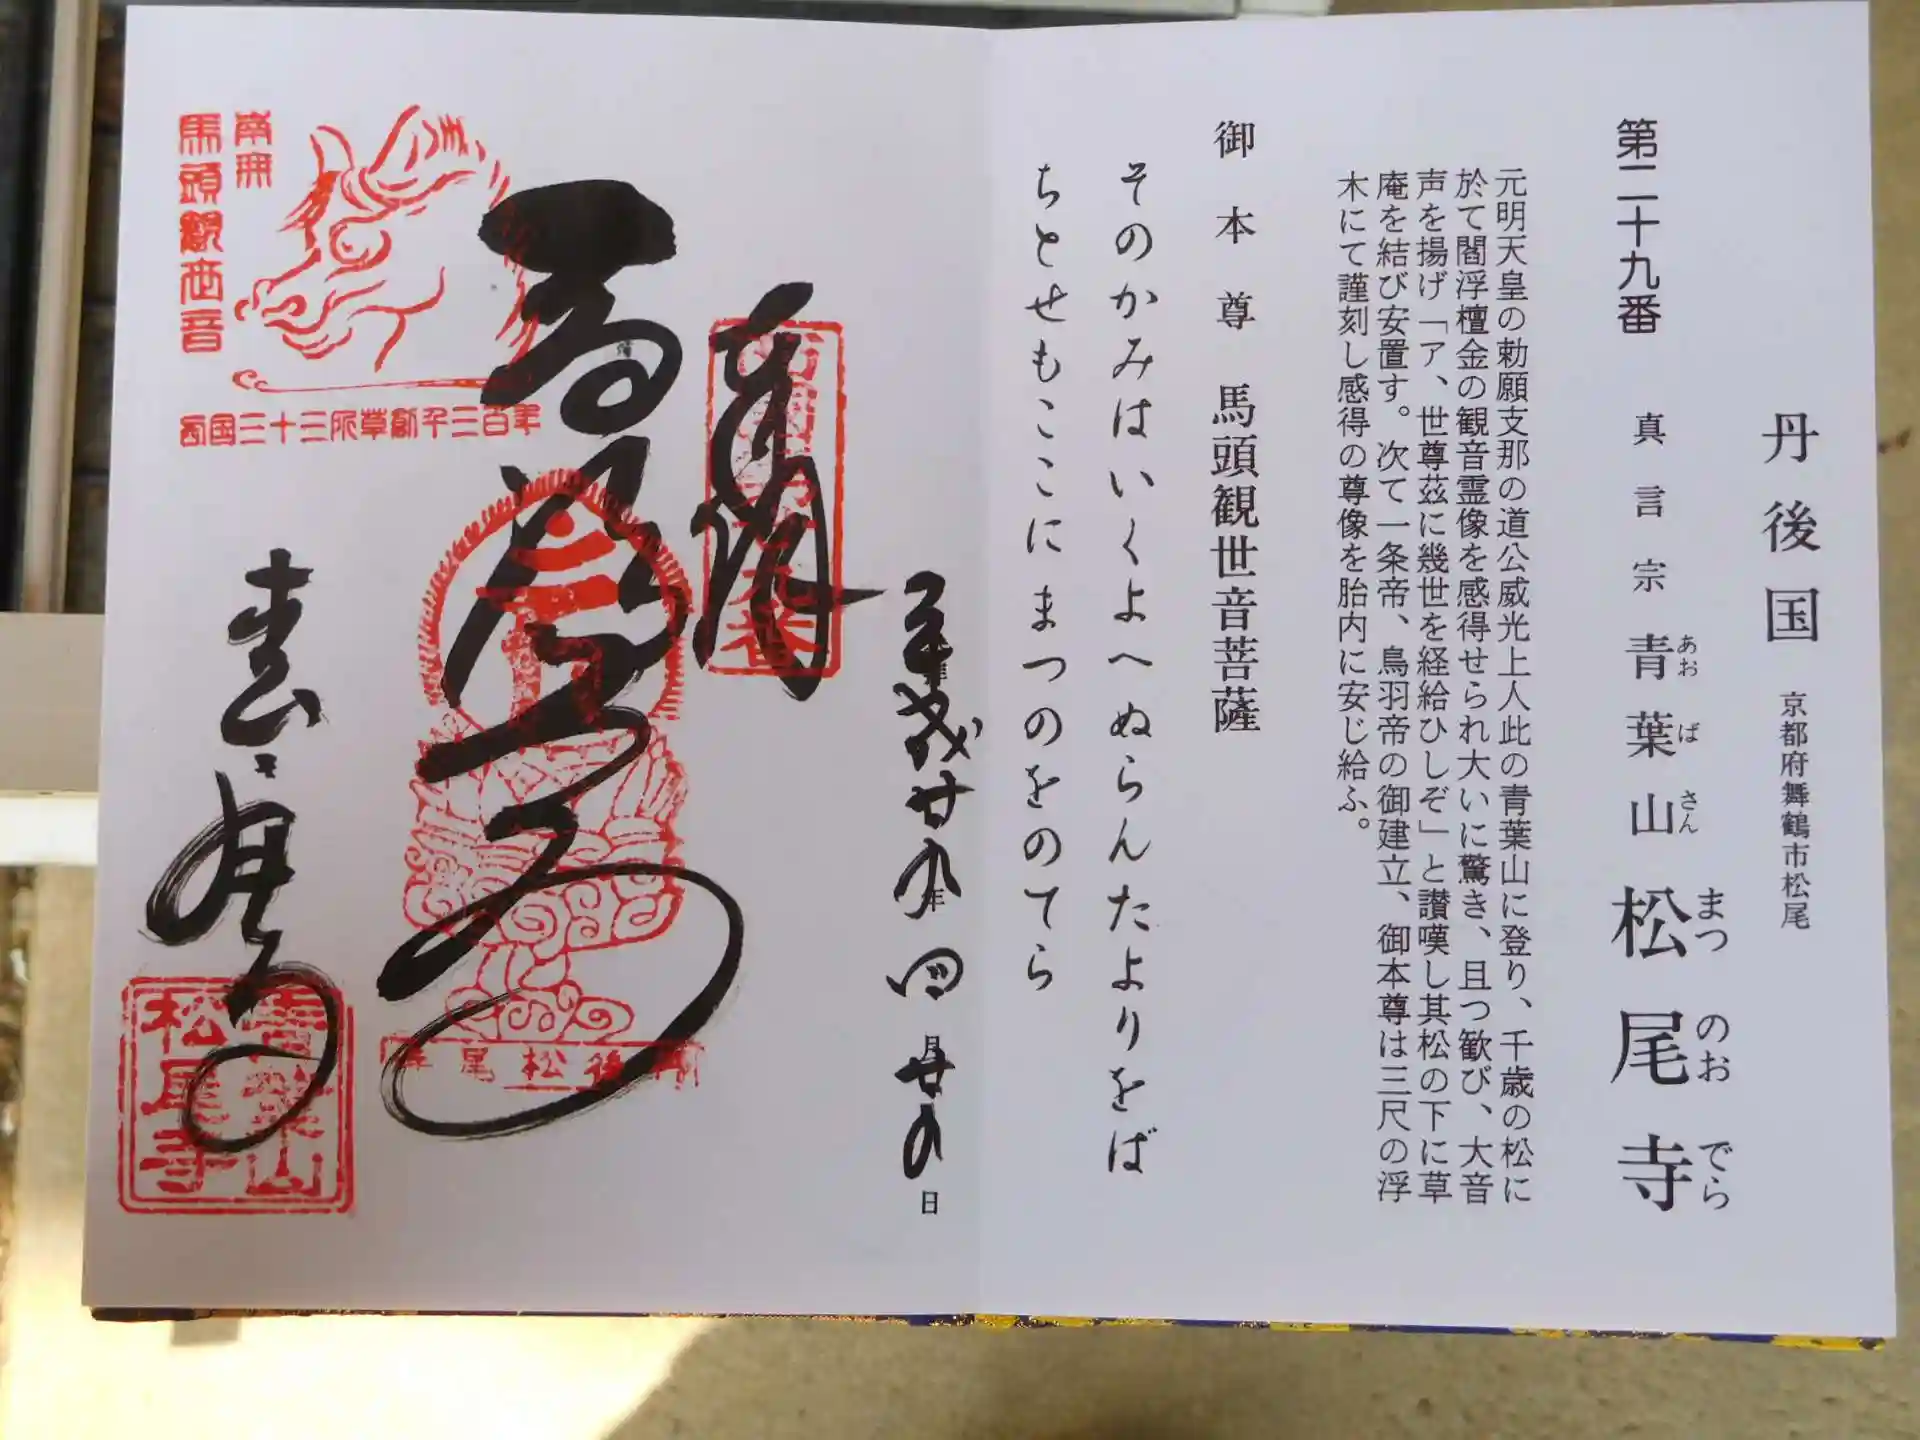 丹後国 京都府舞鶴市松尾
第二十九番 真言宗 青葉山 松尾寺
あおばさん まつのおでら
元明天皇の勅願支那の道公威光上人此の青葉山に登り、千歳の松に
於て閻浮檀金の観音霊像を感得せられ大いに驚き、且つ歓び、大音
声を揚げ「ア、世尊茲に幾世を経給ひしぞ」と讃嘆し其松の下に草
庵を結び安置す。次て一条帝、鳥羽帝の御建立、御本尊は三尺の浮
木にて謹刻し感得の尊像を胎内に安じ給ふ。
御本尊 馬頭観世音菩薩
そのかみはいくよへぬらんたよりをば
ちとせもここにまつのをのてら
平成廿九年四月廿九日
奉拝
松尾寺
南無
馬頭觀世音
西国三十三所草創千三百年
青葉山
松尾寺